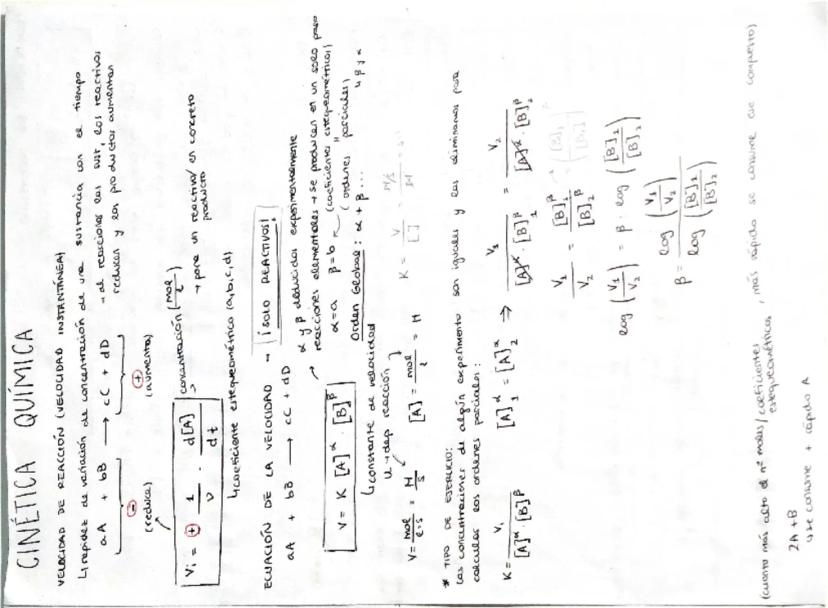 CINÉTICA QUÍMICA
VELOCIDAD DE REACCIÓN (VELOCIDAD INSTANTÁNEA)
↳ rapidez de variación de concentración de una sustancia con el tiempo
aA + bB → cC + dD
→ al reaccionar las sust, los reactivos
reducen y los productos aumentan
⊖ ⊕
(reduce) (aumenta)
Vi = ± 1/ν · d[A]/dt
concentración (mol/l)
→ para un reactivo/producto en concreto
↳ coeficiente estequeométrico (a,b,c,d)
ECUACIÓN DE LA VELOCIDAD → ¡SOLO REACTIVOS!
aA + bB → cC + dD
α y β deducidos experimentalmente
V = K [A]^α · [B]^β
reacciones elementales → se producen en un solo paso
α=a β=b (coeficientes estequeométricos)
(ordenes parciales)
Orden Global: α + β ...
↳ β y α
↳ constante de velocidad
↳ dep reacción
V = mol/l·s = M/s
[A] = mol/l = M
K = V/[ ]
* TIPO DE EJERCICIO:
Las concentraciones de algún experimento son iguales y las eliminamos para
calcular los ordenes parciales:
K = V₁/[A]^α · [B]^β
[A]₁^α = [A]₂^α ⇒
V₁/[A]^α · [B]₁^β = V₂/[A]^α · [B]₂^β
V₁/V₂ = [B]₁^β/[B]₂^β
log (V₁/V₂) = β · log ([B]₁/[B]₂)
β = log (V₁/V₂)/log ([B]₁/[B]₂)
(cuanto más alto el nº moles/coeficientes estequeométricos, más rápido se consume ese compuesto)
2A + B
↳ se consume + rápido A